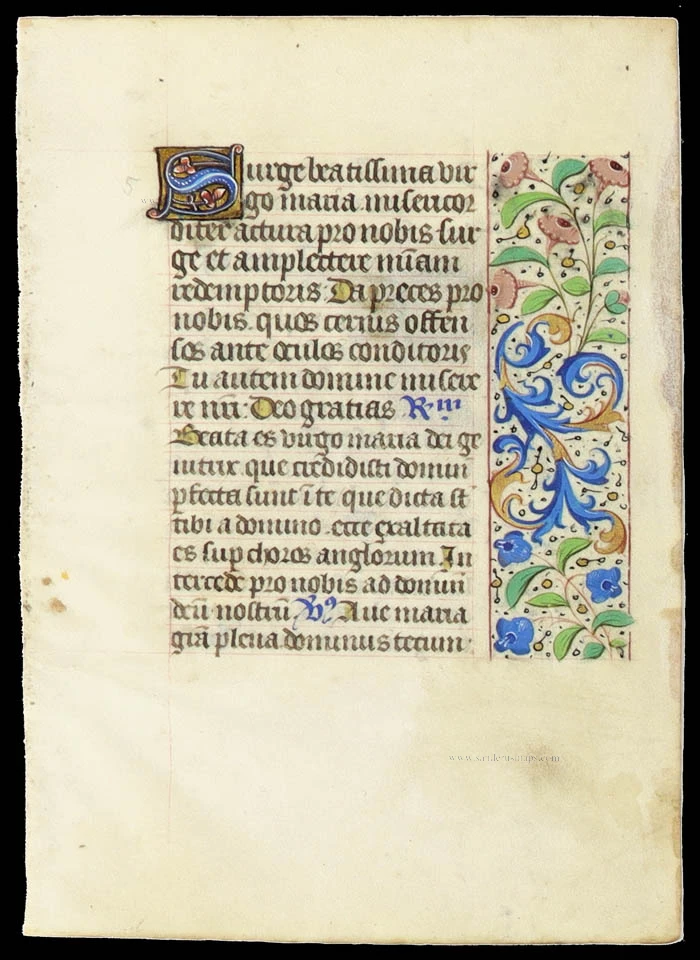 Surge beatissima vir
go maria misericor
diter actura pro nobis sur
ge et amplectere nr̄am
redemptoris Da preces pro
nobis. quos cernis offen
sos ante oculos conditoris
Tu autem domine misere
re nr̄i. Deo gratias R. iii
Beata es virgo maria dei ge
nitrix. que credidisti domin̄
ꝑfecta sunt ī te que dicta st̄
tibi a domino. ecce exaltata
es suꝑ choros anglorum In
tercede pro nobis ad domin̄
deū nostrū V9 Aue maria
gr̄a plena dominus tecum.